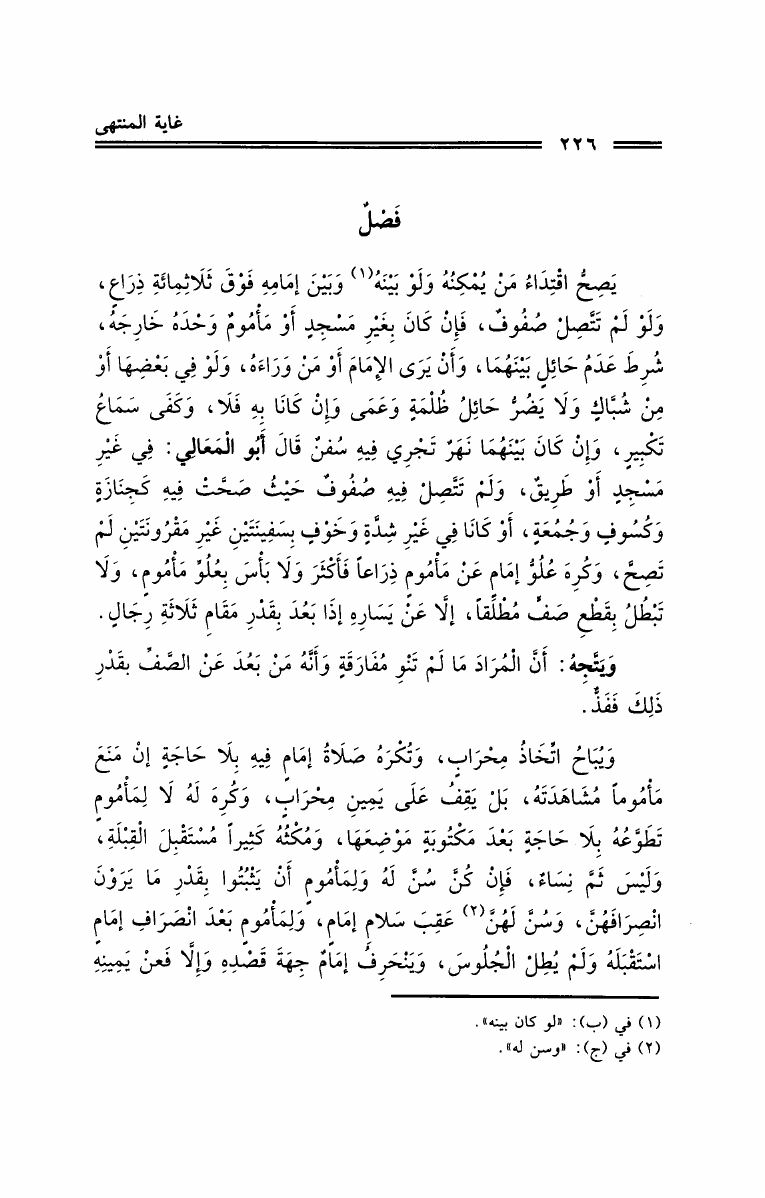 غاية المنتهى
٢٢٦
فَصْلٌ
يَصِحُّ اقْتِدَاءُ مَنْ يُمْكِنُهُ وَلَوْ بَيْنَهُ(١) وَبَيْنَ إمَامِهِ فَوْقَ ثَلَاثِمِائَةِ ذِرَاعٍ،
وَلَوْ لَمْ تَتَّصِلْ صُفُوفٌ، فَإِنْ كَانَ بِغَيْرِ مَسْجِدٍ أَوْ مَأْمُومٌ وَحْدَهُ خَارِجَهُ،
شُرِطَ عَدَمُ حَائِلٍ بَيْنَهُمَا، وَأَنْ يَرَى الإِمَامَ أَوْ مَنْ وَرَاءَهُ، وَلَوْ فِي بَعْضِهَا أَوْ
مِنْ شُبَّاكٍ وَلَا يَضُرُّ حَائِلُ ظُلْمَةٍ وَعَمَى وَإِنْ كَانَا بِهِ فَلَا، وَكَفَى سَمَاعُ
تَكْبِيرٍ، وَإِنْ كَانَ بَيْنَهُمَا نَهَرٌ تَجْرِي فِيهِ سُفُنٌ قَالَ أَبُو الْمَعَالِي: فِي غَيْرِ
مَسْجِدٍ أَوْ طَرِيقٌ، وَلَمْ تَتَّصِلْ فِيهِ صُفُوفٌ حَيْثُ صَحَّتْ فِيهِ كَجِنَازَةٍ
وَكُسُوفٍ وَجُمُعَةٍ، أَوْ كَانَا فِي غَيْرِ شِدَّةِ وَخَوْفٍ بِسَفِينَتَيْنِ غَيْرِ مَقْرُونَتَيْنِ لَمْ
تَصِحَّ، وَكُرِهَ عُلُوُّ إمَامٍ عَنْ مَأْمُومٍ ذِرَاعاً فَأَكْثَرَ وَلَا بَأْسَ بِعُلُوِّ مَأْمُومٍ، وَلَا
تَبْطُلُ بِقَطْعِ صَفٍّ مُطْلَقاً، إلَّا عَنْ يَسَارِهِ إذَا بَعُدَ بِقَدْرِ مَقَامِ ثَلَاثَةِ رِجَالٍ.
وَيَتَّجِهُ: أَنَّ الْمُرَادَ مَا لَمْ تَنْوِ مُفَارَقَةٍ وَأَنَّهُ مَنْ بَعُدَ عَنْ الصَّفِّ بِقَدْرِ
ذَلِكَ فَفَذٌّ.
وَيُبَاحُ اتِّخَاذُ مِحْرَابٍ، وَتُكْرَهُ صَلَاةُ إمَامٍ فِيهِ بِلَا حَاجَةٍ إنْ مَنَعَ
مَأْمُوماً مُشَاهَدَتَهُ، بَلْ يَقِفُ عَلَى يَمِينِ مِحْرَابٍ، وَكُرِهَ لَهُ لَا لِمَأْمُومٍ
تَطَوُّعُهُ بِلَا حَاجَةٍ بَعْدَ مَكْتُوبَةٍ مَوْضِعَهَا، وَمُكْثُهُ كَثِيراً مُسْتَقْبِلَ الْقِبْلَةِ،
وَلَيْسَ ثَمَّ نِسَاءٌ، فَإِنْ كُنَّ سُنَّ لَهُ وَلِمَأْمُومٍ أَنْ يَثْبُتُوا بِقَدْرِ مَا يَرَوْنَ
انْصِرَافَهُنَّ، وَسُنَّ لَهُنَّ(٢) عَقِبَ سَلَامِ إمَامٍ، وَلِمَأْمُومٍ بَعْدَ انْصَرَافِ إمَامٍ
اسْتَقْبَلَهُ وَلَمْ يُطِلْ الْجُلُوسَ، وَيَنْحَرِفُ إمَامٌ جِهَةَ قَصْدِهِ وَإِلَّا فَعَنْ يَمِينِهِ
(١) في (ب): «لو كان بينه».
(٢) في (ج): «وسن له».